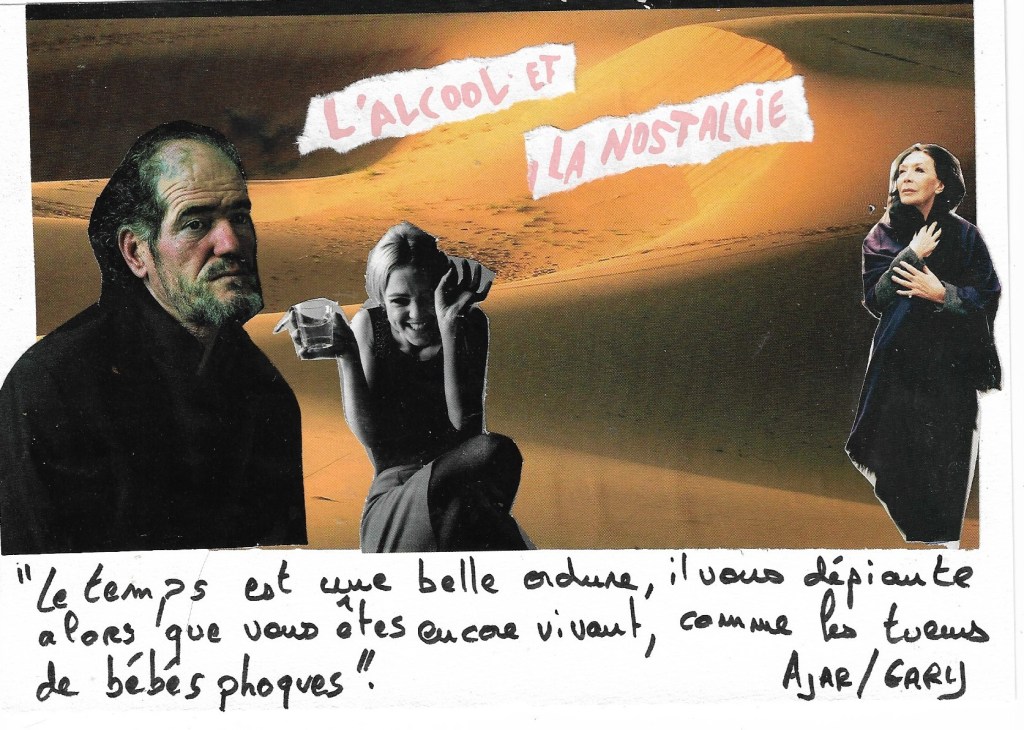 L'ALCOOL ET
LA NOSTALGIE
"Le temps est une belle ordure, il vous dépiaute
alors que vous êtes encore vivant, comme les tueurs
de bébés phoques".
AJAR/GARY